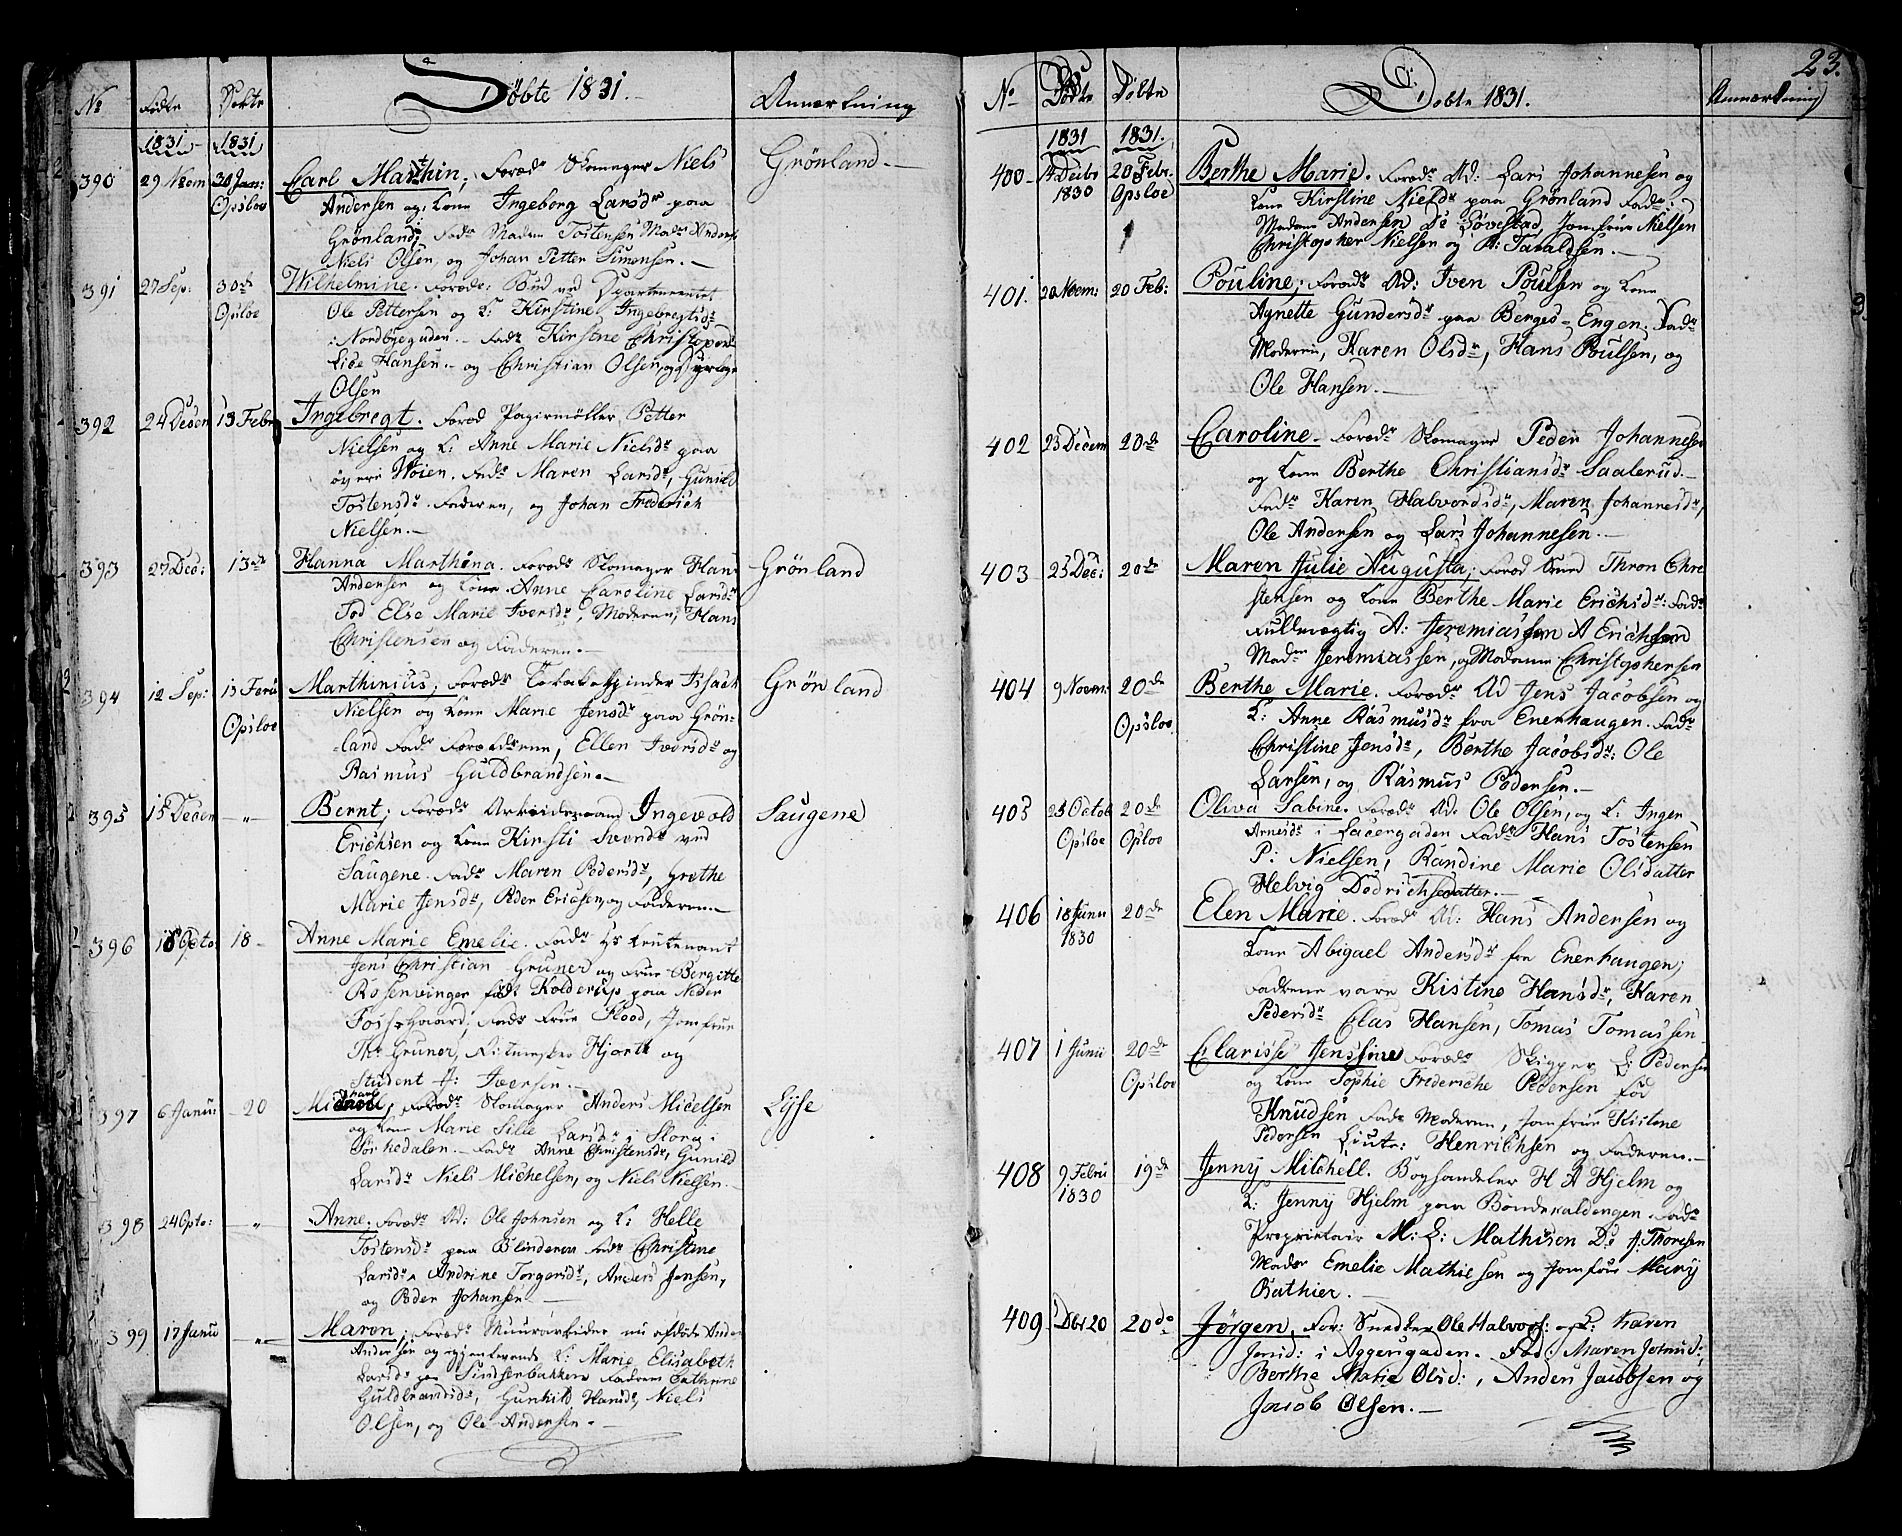 No Fødte Døbte Døbte 1831. Anmærkning
1831 1831
390 29 Novm 30 Jan: Opsloe Carl Marthin, Foræd: Skomager Niels Grønland.
Andersen og Kone Ingeborg Larsdr paa
Grønland, Fadr Madm Tostensen Madr Anders
Niels Olsen, og Johan Petter Simonsen.
391 27 Sep: 30de Opsloe Wilhelmine. Foræd: Bud ved Departementet
Ole Pettersen og K: Kirstine Ingebregtsdr
Nordbygaden. Fadr Kirstine
Hansen. og Christian Olsen, og
Olsen
392 24 Decem 13 Febr Ingebregt. Foræd Papirmøller Petter
Nielsen og K: Anne Marie Nielsdr paa
øvere Woien. Fadr Maren Larsdr, Gunild
Tostensdr Faderen, og Johan Frederich
Nielsen.
393 27 Dec: 13de Hanna Marthina. Forædr Skomager Hans Grønland
Andersen og Kone Anne Caroline Larsdr
Fad Else Marie Iversdr, Moderen, Hans
Christensen og Faderen.
394 12 Sep: 13 Feru Opsloe Marthinius, Forædr Tobakspinder Issach Grønland
Nielsen og Kone Marie Jensdr paa Grøn-
land Fadr Forældrene, Ellen Iversdr og
Rasmus Guldbrandsen.
395 15 Decem " Bernt, Forædr Arbeidsmand Ingevold Saugene
Erichsen og Kone Kirsti Svendr ved
Saugene. Fadr Maren Pedersdr, Grethe
Marie Jensdr, Peder Erichsen, og Faderen.
396 18 Octo 18 Anne Marie Emelie. Fadr Hr Leutenant
Jens Christian Gruner og Frue Bergitte
Rosenvinger født Kolderup paa Neder
Fossegaard, Fadr Frue Flood, Jomfrue
Th: Gruner, Ritmester Hjorth og
Student A: Iversen.
397 6 Janu 20 Michael, Forædr Skomager Anders Micelsen Lysse
og Kone Marie Sille Larsdr i
Sørkedalen. Fadr Anne Christensdr, Gunild
Larsdr Niels Michelsen, og Niels Nielsen.
398 24 Octo: " Anne. Forædr Ad: Ole Johnsen og K: Helle
Tostensdr paa Blinderen Fadr Christine
Larsdr Andrine Torgersdr, Anders Jensen,
og Peder Johansen
399 17 Janu " Maren, Forædr Muurarbeider nu afdøde Ander
Andersen og igjenlevende K: Marie Elisabeth
Larsdr paa Sinsenbakken Fadren Cathrine
Guldbrandsdr, Gunhild Hansdr, Niels
Olsen, og Ole Andersen.
23.
No Fødte Døbte Døbte 1831. Anmærkning
1831 1831.
400 Decbr 1830 20 Febr. Opsloe Berthe Marie. Forædr Ad: Lars Johannesen og
Kone Kirstine Nielsdr paa Grønland Fadr:
Madame Andersen Do Bøvestad, Jomfrue Nielsen
Christopher Nielsen og A: Taraldsen.
401. 20 Novm: 20 Feb: Pouline, Forædr Ad: Iven Poulsen og Kone
Agnette Gundersdr paa Berges-Engen. Fadr
Moderen, Karen Olsdr, Hans Poulsen, og
Ole Hansen.
402 23 Decem 20de Caroline. Forædr Skomager Peder Johannesen
og Kone Berthe Christiansdr Saalerud.
Fadr Karen Halvorsdr, Maren Johannesdr,
Ole Andersen og Lars Johannesen.
403 25 Dec: 20de Maren Julie Augusta, Foræd Smed Thron Chre
stensen og Kone Berthe Marie Erichsdr: Fadr
Fuldmægtig A: Jeremiassen A Erichsen
Madm Jeremiassen, og Madame Christophersen
404 9 Novm: 20de Opsloe Berthe Marie. Forædr Ad Jens Jacobsen og
K: Anne Rasmusdr fra Enerhaugen. Fadr
Christine Jensdr, Berthe Jacobsdr: Ole
Larsen, og Rasmus Pedersen.
405 25 Octob Opsloe 20de Opsloe Oliva Sabine. Forædr Ad. Ole Olsen, og K: Inger
Arnesdr i Lakkegaden Fadr Hans Tostensen
P: Nielsen, Randine Marie Olsdatter
Helvig Dedrichsdatter.
406 18 Junu 1830 20de Elen Marie. Forædr Ad: Hans Andersen og
Kone Abigael Andersdr fra Enerhaugen;
Fadrene vare Kistine Hansdr, Karen
Pedersdr Elas Hansen, Tomas Tomassen
407 1 Junii 20de Opsloe Clarisse Jensine Forædr Skipper L: Pedersen
og Kone Sophie Frederiche Pedersen Fød
Knudsen Fadr Moderen, Jomfrue Kistene
Pedersen Liutr: Henrichsen og Faderen.
408 9 Febru 1830 19de Jenny Mitchell. Boghandeler H A Hjelm og
K: Jenny Hjelm paa Bondevaldengen Fadr
Proprietair M: L: Mathisen Do J. Thoresen
Madr Emelie Mathiesen og Jomfrue Mary
Bathier.
409 Dbr 20 20de Jørgen, For: Snedker Ole Halvors: og K: Karen
Jensd: i Aggersgaden. Fad: Maren Johnsd:,
Berthe Marie Olsd:, Anders Jacobsen og
Jacob Olsen.